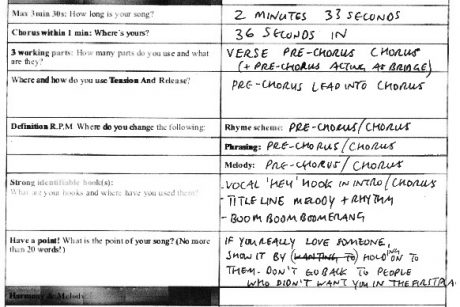 Max 3min 30s: How long is your song?
2 MINUTES 33 SECONDS
Chorus within 1 min: Where's yours?
36 SECONDS IN
3 working parts: How many parts do you use and what
are they?
VERSE PRE-CHORUS CHORUS
(+ PRE-CHORUS ACTING AS BRIDGE)
Where and how do you use Tension And Release?
PRE-CHORUS LEAD INTO CHORUS
Definition R.P.M Where do you change the following:
Rhyme scheme: PRE-CHORUS/CHORUS
Phrasing: PRE-CHORUS/CHORUS
Melody: PRE-CHORUS/CHORUS
Strong identifiable hook(s):
What are your hooks and where have you used them?
-VOCAL 'HEY' HOOK IN INTRO/CHORUS
-TITLE LINE MELODY + RHYTHM
-BOOM BOOM BOOMERANG
Have a point! What is the point of your song? (No more
than 20 words!)
IF YOU REALLY LOVE SOMEONE,
SHOW IT BY (WANTING TO) HOLDING ON TO
THEM. DON'T GO BACK TO PEOPLE
WHO DIDN'T WANT YOU IN THE FIRST PLA
Harmony & Melody